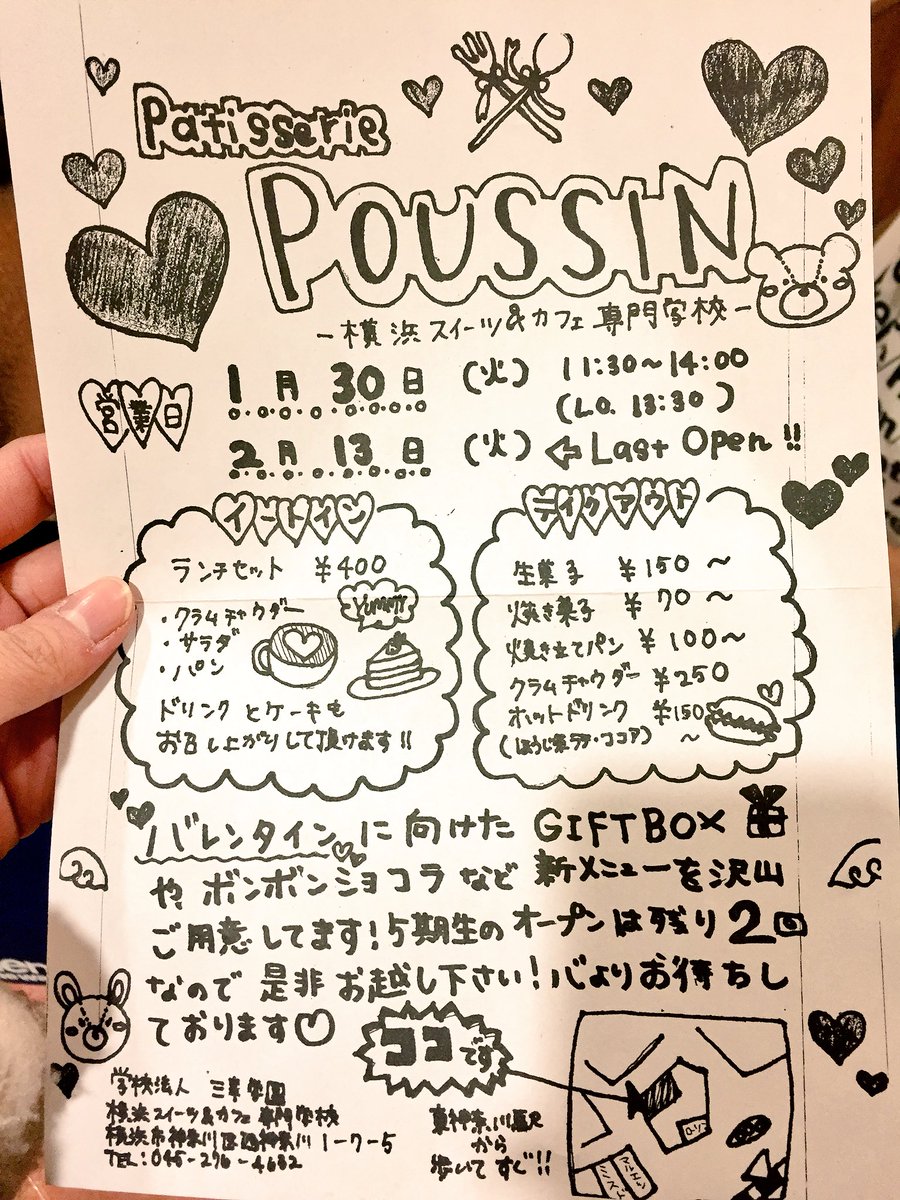 Patisserie
POUSSIN
－横浜スイーツ&カフェ専門学校－
営業日
1月30日(火) 11:30～14:00
(L.O. 13:30)
2月13日(火) ⇦Last Open!!
イートイン
ランチセット ¥400
・クラムチャウダー
・サラダ
・パン
Yummy
ドリンクとケーキも
お召し上がりして頂けます!!
テイクアウト
生菓子 ¥150～
焼き菓子 ¥70～
焼き立てパン ¥100～
クラムチャウダー ¥250
ホットドリンク ¥150～
(ほうじ茶ラテ・ココア)
バレンタインに向けたGIFTBOX
やボンボンショコラなど新メニューを沢山
ご用意してます!5期生のオープンは残り2回
なので是非お越し下さい!心よりお待ちし
ております♡
ココです
学校法人 三幸学園
横浜スイーツ&カフェ専門学校
横浜市神奈川区西神奈川1-7-5
TEL:045-276-4632
東神奈川駅
から
歩いてすぐ!!
マルエツ